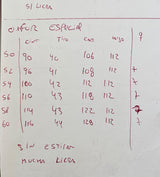 S/ LICRA
CONFOR ESPECIAL
CINT TIRO CAD LARGO 9
50 90 40 106 112
52 96 41 108 112 +
54 100 42 112 112 +
56 110 43 118 112 +
58 114 43 122 112
60 116 44 128 112 +
SIN ESTIRAR
MUCHA LICRA